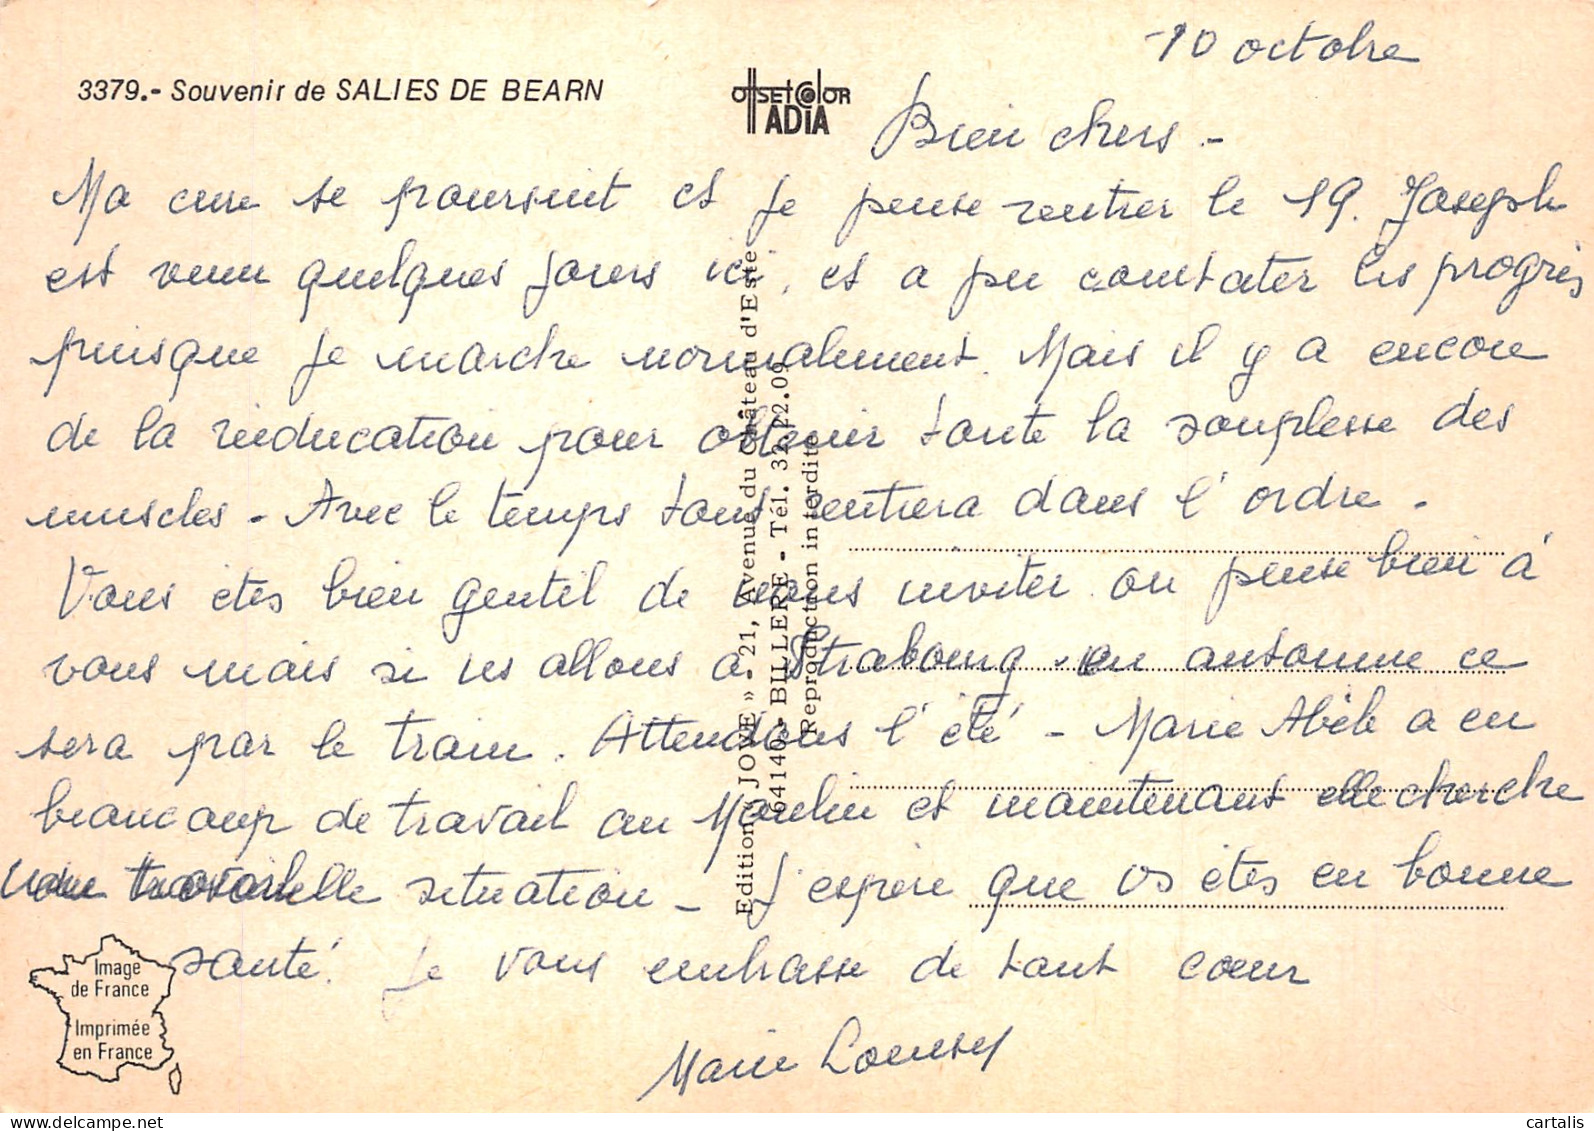 10 octobre
3379.- Souvenir de SALIES DE BEARN
OffSEt COlOR
ADIA
Bien chers -
Ma cure se poursuit et je pense rentrer le 19. Joseph
est venu quelques jours ici, et a pu constater les progrès
puisque je marche normalement. Mais il y a encore
de la rééducation pour obtenir toute la souplesse des
muscles - Avec le temps tout rentrera dans l'ordre.
Vous êtes bien gentil de nous inviter on pense bien à
vous mais si ns allons à Strabourg en automne ce
sera par le train. Attendons l'été - Marie Abèle a en
beaucoup de travail au Moulin et maintenant elle cherche
situation - J'espère que vs êtes en bonne
santé. Je vous embrasse de tout cœur
Marie
Editions « JOVE » - 21, Avenue du Château d'Este
64140 - BILLERE - Tél. 32.22.09
Reproduction interdite
Image
de France
Imprimée
en France
cartalis
www.delcampe.net